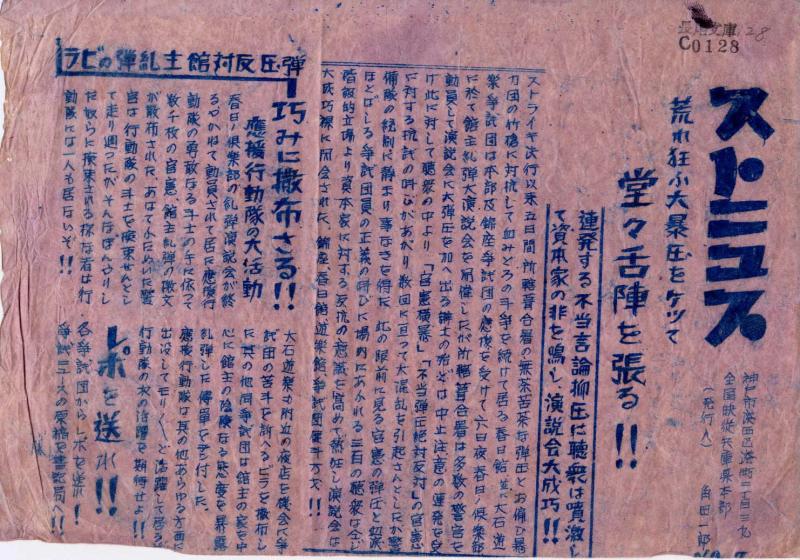 C0128
128
ストニュス
神戸市湊西区湊町二丁目三九
全国映従兵庫県本部
(発行人) 角田一郎
荒れ狂ふ大暴圧をケッて
堂々舌陣を張る!!
連発する不当言論抑圧に聴衆は噴激し
て資本家の非を鳴し、演説会大成功!!
ストライキ決行以来五日間、所轄葺合署の無茶苦茶な弾圧とお傭ひ暴
力団の竹槍に対抗して血みどろの斗争を続けて居る春日館並に大石遊
楽争試団は本部及錦座争試団の應援を受けて六日夜春日ノ倶楽部
に於て館主糺弾大演説会を開催したが所轄葺合署は多数の警官を
動員して演説会に大弾圧を加へ出る辯士の殆どは中止注意の連発を受
け此に対して聴衆の中より「官憲横暴」「不当弾圧絶対反対」の官憲
に対する抗試の叫びがあがり数回に亘って大混乱を引起さんとしたが警
備隊の統制に静まり事なきを得た、此の眼前に見る官憲の弾圧と如実
ほとばしる争試団員の正義の叫びに場内にあふれる三百の聴衆は全ど
階級的立場より資本家に対する反抗の意識を高めて熱狂し演説会は
大成功裡に閉会された、錦座春日館遊楽館争試団催斗万才!!
弾圧反対館主糺弾のビラ
巧みに撒布さる!!
應援行動隊の大活動
春日ノ倶楽部の糺弾演説会が終
るやかねて動員されて居た應援行
動隊の勇敢なる斗士の手に依って
数千枚の官憲、館主糺弾の檄文
が散布された、あはてふためいた警
官は行動隊の斗士を検束せんとし
て走り廻ったがそんなぼんやりし
た奴らに検束される様な者は行
動隊には一人も居ないぞ!!
大石遊楽の附近の夜店を機会に争
試団の苦斗を訴へるビラを撒布し
た其の他同争試団は館主の家を中
心に館主の陰険なる態度を暴露
糺弾した傳單を二千付した。
應援行動隊は其の他あらゆる方面に
出没してモリくと活躍して居る、
行動隊の次の活躍を期待せよ!!
レポを送れ!!
各争試団からレポを送れ!
争試ニュースの原稿を書記局へ!!